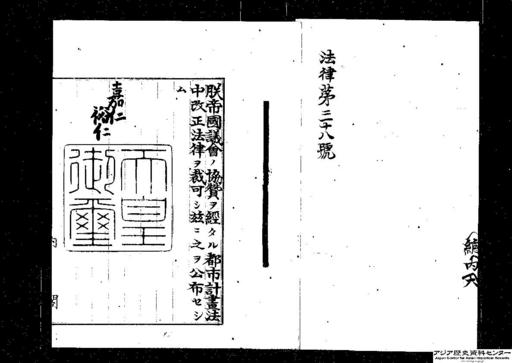 法律第三十八號
朕帝國議會ノ協賛ヲ經タル都市計畫法
中改正法律ヲ裁可シ玆ニ之ヲ公布セシ
ム
嘉仁
裕仁
天皇
御璽
内閣
アジア歴史資料センター
Japan Center for Asian Historical Records